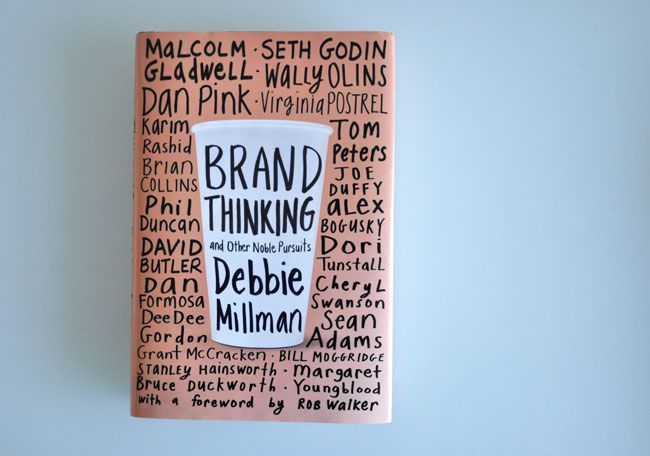 MALCOLM · SETH GODIN
GLadWELL · WALLY OLINS
Dan Pink · Virginia POSTREL
Karim
Rashid
Brian
COLLINS
Phil
Duncan
DAVID
BUTLER
Dan
Formosa
Dee Dee
Gordon
BRAND
THINKING
and Other Noble Pursuits
Debbie
Millman
Tom
Peters
JOE
DUFFY
aLex
BOGUSKY
Dori
Tunstall
CheryL
Swanson
Sean
Adams
Grant McCracken · BILL MOGGRIDGE
STANLEY HAINSWORTH · Margaret
Bruce Duckworth · Youngblood
with a foreword by ROB WALKER